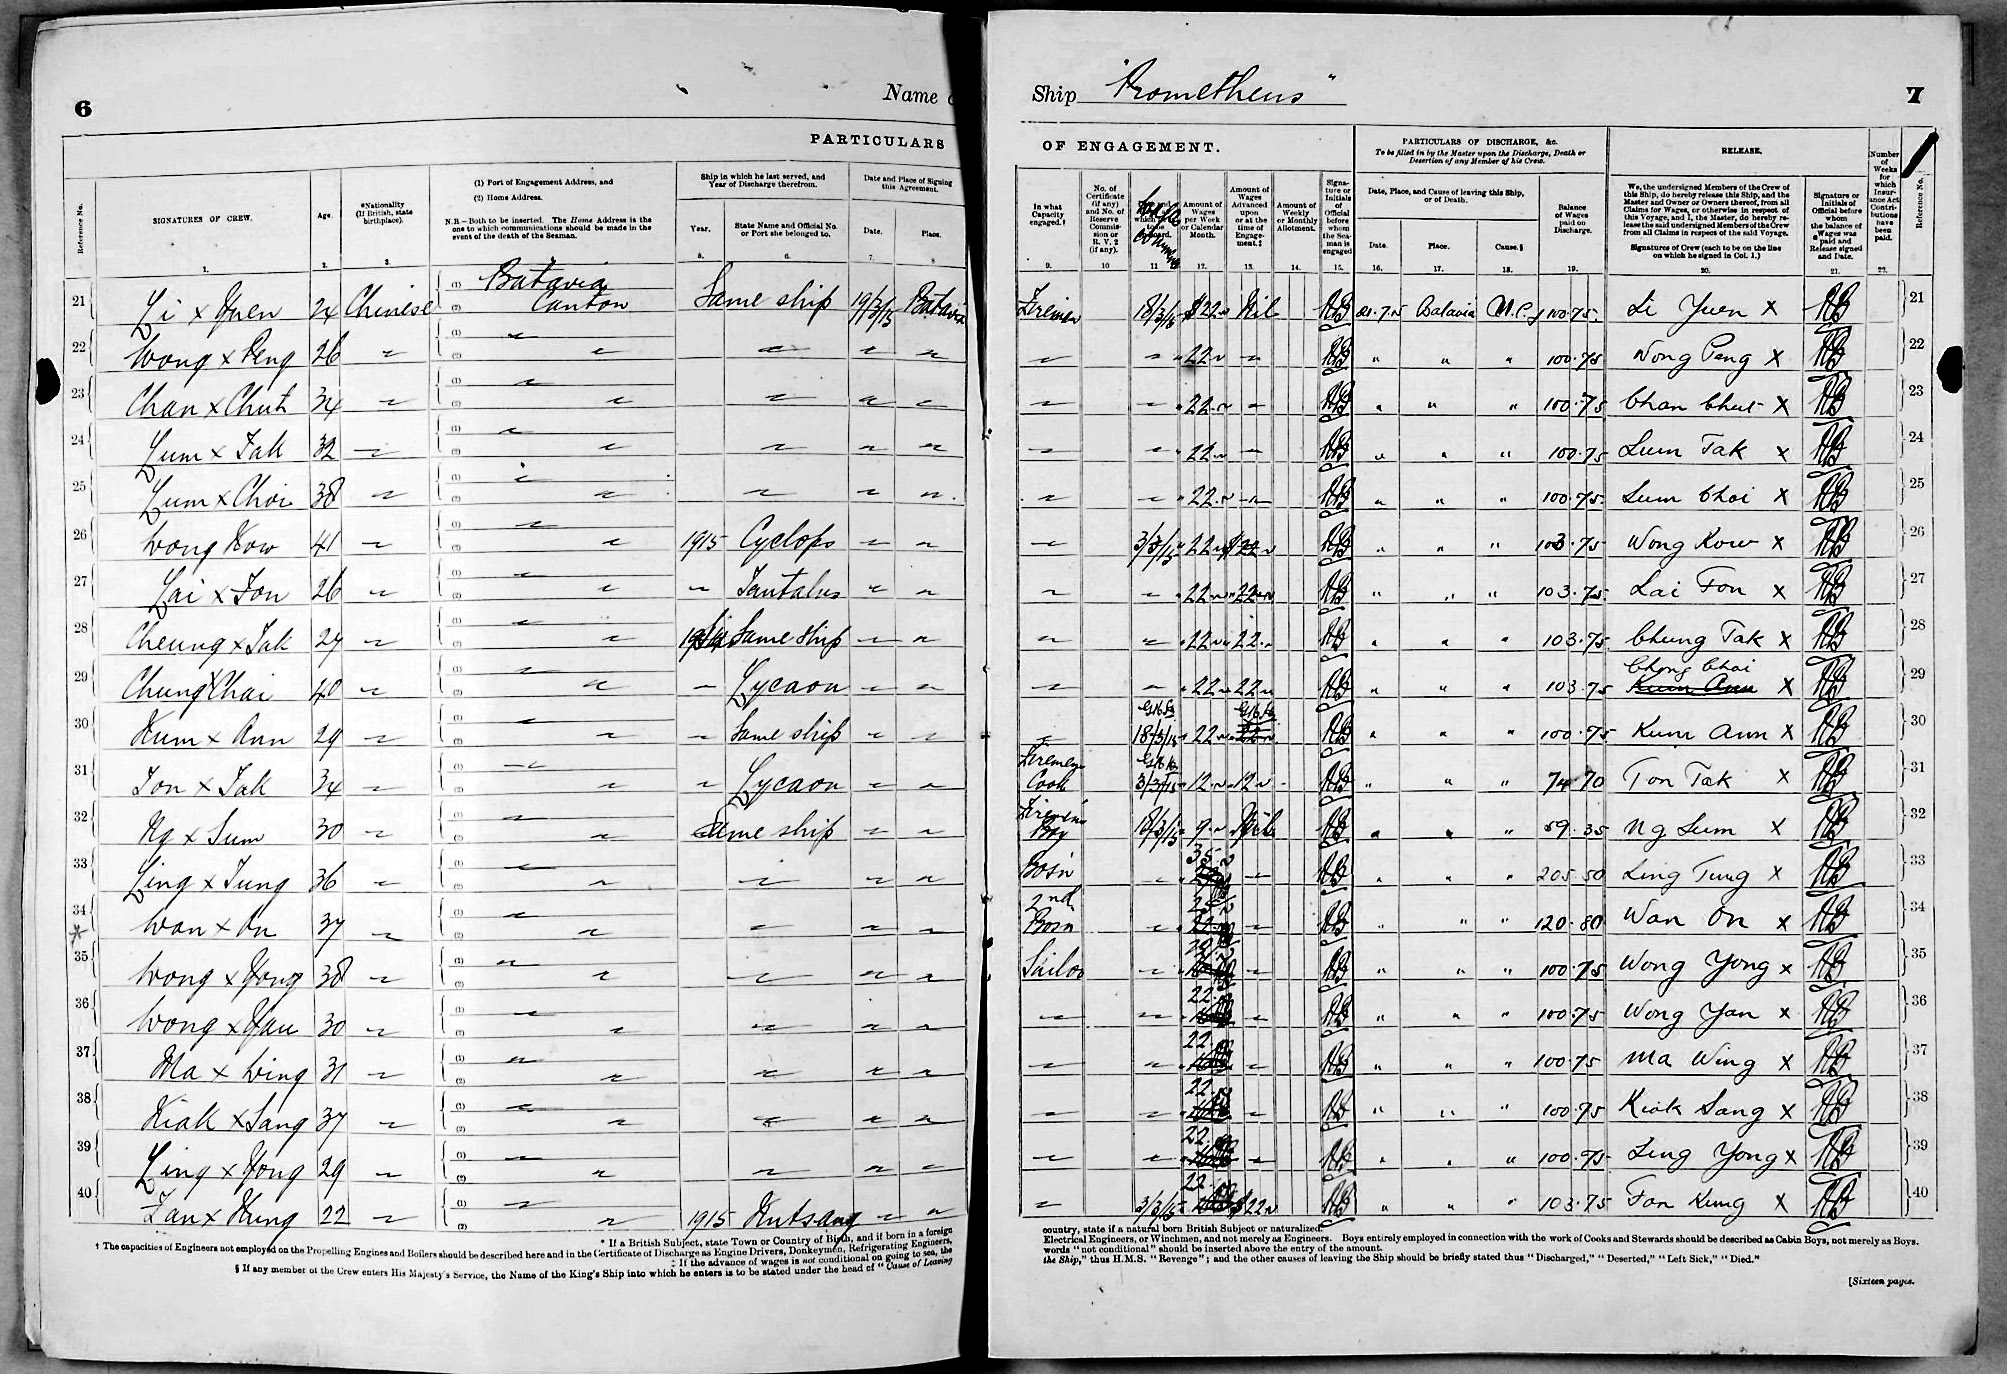 6
Name o
Ship "Prometheus"
7
PARTICULARS
OF ENGAGEMENT.
PARTICULARS OF DISCHARGE, &c.
To be filled in by the Master upon the Discharge, Death or Desertion of any Member of his Crew.
RELEASE.
Reference No.
SIGNATURES OF CREW.
Age.
*Nationality (If British, state birthplace).
(1) Port of Engagement Address, and
(2) Home Address.
N.B.—Both to be inserted. The Home Address is the one to which communications should be made in the event of the death of the Seaman.
Ship in which he last served, and Year of Discharge therefrom.
Year.
State Name and Official No. or Port she belonged to.
Date and Place of Signing this Agreement.
Date.
Place.
In what Capacity engaged.†
No. of Certificate (if any) and No. of Reserve Commission or R. V. 2 (if any).
Amount of Wages per Week or Calendar Month.
Amount of Wages Advanced upon or at the time of Engagement.‡
Amount of Weekly or Monthly Allotment.
Signature or Initials of Official before whom the Seaman is engaged
Date, Place, and Cause of leaving this Ship, or of Death.
Date.
Place.
Cause.§
Balance of Wages paid on Discharge.
We, the undersigned Members of the Crew of this Ship, do hereby release this Ship, and the Master and Owner or Owners thereof, from all Claims for Wages, or otherwise in respect of this Voyage, and I, the Master, do hereby release the said undersigned Members of the Crew from all Claims in respect of the said Voyage.
Signatures of Crew (each to be on the line on which he signed in Col. 1.)
Signature or Initials of Official before whom the balance of Wages was paid and Release signed and Date.
Number of Weeks for which Insurance Act Contributions have been paid.
Reference No.
1. 2. 3. 5. 6. 7. 8. 9. 10 11 12. 13. 14. 15. 16. 17. 18. 19. 20. 21. 22.
21 Li x Yuen 24 Chinese (1) Batavia (2) Canton Same ship 19/3/15 Batavia Firemen 18/3/15 $22 Nil 21.7.15 Batavia M.C. $100.75 Li Yuen x 21
22 Wong x Peng 26 " 22 100.75 Wong Peng x 22
23 Chan x Chut 34 " 22 100.75 Chan Chut x 23
24 Lum x Tak 32 " 22 100.75 Lum Tak x 24
25 Lum x Choi 38 " 22 100.75 Lum Choi x 25
26 Wong Kow 41 " 1915 Cyclops 3/3/15 22 $22 103.75 Wong Kow x 26
27 Lai x Fon 26 " Tantalus 22 22 103.75 Lai Fon x 27
28 Cheung x Tak 27 " Same ship 22 22 103.75 Chung Tak x 28
29 Chung x Chai 40 " Lycaon 22 22 103.75 Chong Chai Kum Ann x 29
30 Kum x Ann 29 " Same ship 18/3/15 22 22 100.75 Kum Ann x 30
31 Ton x Tak 34 " Lycaon Firemen Cook 3/3/15 12 12 74.70 Ton Tak x 31
32 Ng x Sum 30 " Same ship Firemen's Boy 18/3/15 9 Nil 59.35 Ng Sum x 32
33 Ling x Tung 36 " Bosn 35 205.50 Ling Tung x 33
34 * Wan x On 37 " 2nd Bosn 25 120.80 Wan On x 34
35 Wong x Yong 38 " Sailor 100.75 Wong Yong x 35
36 Wong x Yau 30 " 22 100.75 Wong Yan x 36
37 Ma x Wing 31 " 22 100.75 Ma Wing x 37
38 Kiak x Sang 37 " 22 100.75 Kiak Sang x 38
39 Ling x Yong 29 " 22 100.75 Ling Yong x 39
40 Fan x Kung 22 " 1915 Kutsang 3/3/15 22 $22 103.75 Fon Kung x 40
* If a British Subject, state Town or Country of Birth, and if born in a foreign country, state if a natural born British Subject or naturalized.
† The capacities of Engineers not employed on the Propelling Engines and Boilers should be described here and in the Certificate of Discharge as Engine Drivers, Donkeymen, Refrigerating Engineers, Electrical Engineers, or Winchmen, and not merely as Engineers. Boys entirely employed in connection with the work of Cooks and Stewards should be described as Cabin Boys, not merely as Boys.
‡ If the advance of wages is not conditional on going to sea, the words "not conditional" should be inserted above the entry of the amount.
§ If any member of the Crew enters His Majesty's Service, the Name of the King's Ship into which he enters is to be stated under the head of "Cause of Leaving the Ship," thus H.M.S. "Revenge"; and the other causes of leaving the Ship should be briefly stated thus "Discharged," "Deserted," "Left Sick," "Died."
[Sixteen pages.